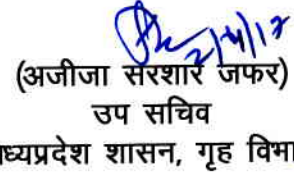 2/4/17
(अजीजा सरशार जफर)
उप सचिव
मध्यप्रदेश शासन, गृह विभाग